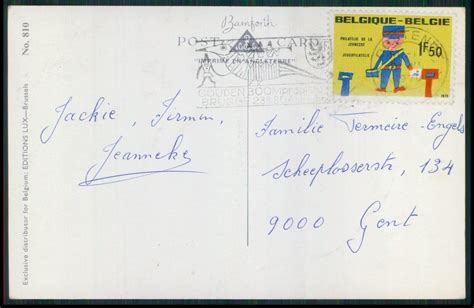 Bamforth
POST CARD
"IMPRIMÉ EN ANGLETERRE"
No. 810
Exclusive distributor for Belgium: EDITIONS LUX—Brussels
BELGIQUE-BELGIE
PHILATELIE DE LA
JEUNESSE
JEUGDFILATELIE
1F50
GOUDEN BOOM
BRUGGE
Jackie, Firmin,
Jeanneke
Familie Vermeire-Engels
Scheeplosserstr, 134
9000 Gent